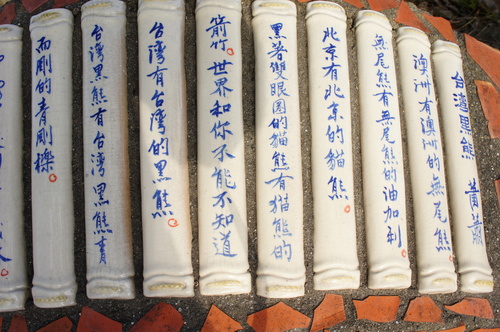 台灣黑熊 蕭蕭
澳洲有澳洲的無尾熊
無尾熊有無尾熊的油加利
北京有北京的貓熊
黑著雙眼圈的貓熊有貓熊的
箭竹世界和你不能不知道
台灣有台灣的黑熊
台灣黑熊有台灣黑熊青
而剛的青剛櫟